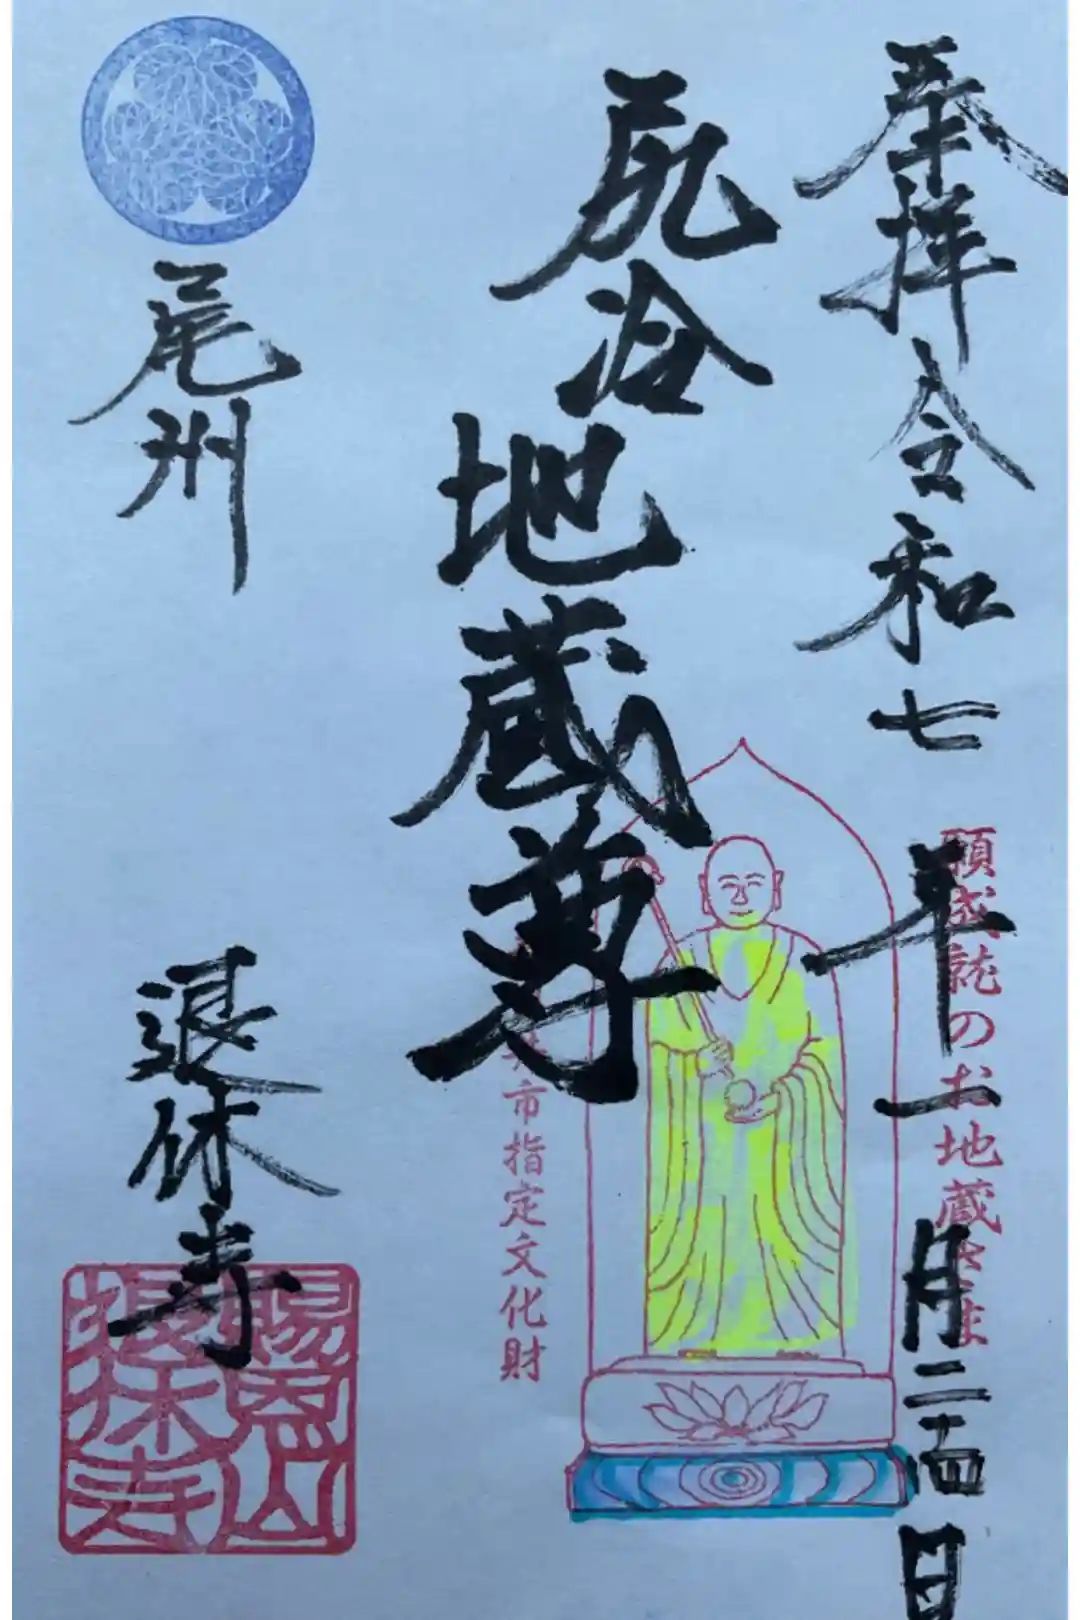 奉拝 令和七年一月二十四日
願成就のお地蔵さま
尻冷地蔵尊
市指定文化財
尾州
退休寺
賜恩山
退休寺